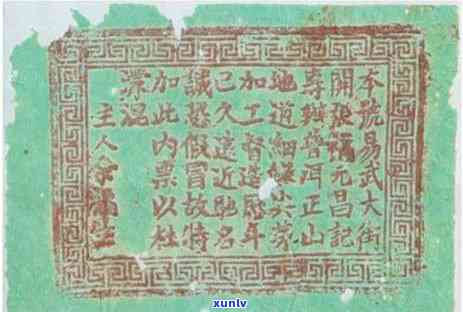 本號易武大街
開張福元昌記
專辦普洱正山
地道細嫩尖芽
加工督造歷年
已久遠近馳名
誠恐假冒故特
加此內票以杜
混
主人余福生
xunlv